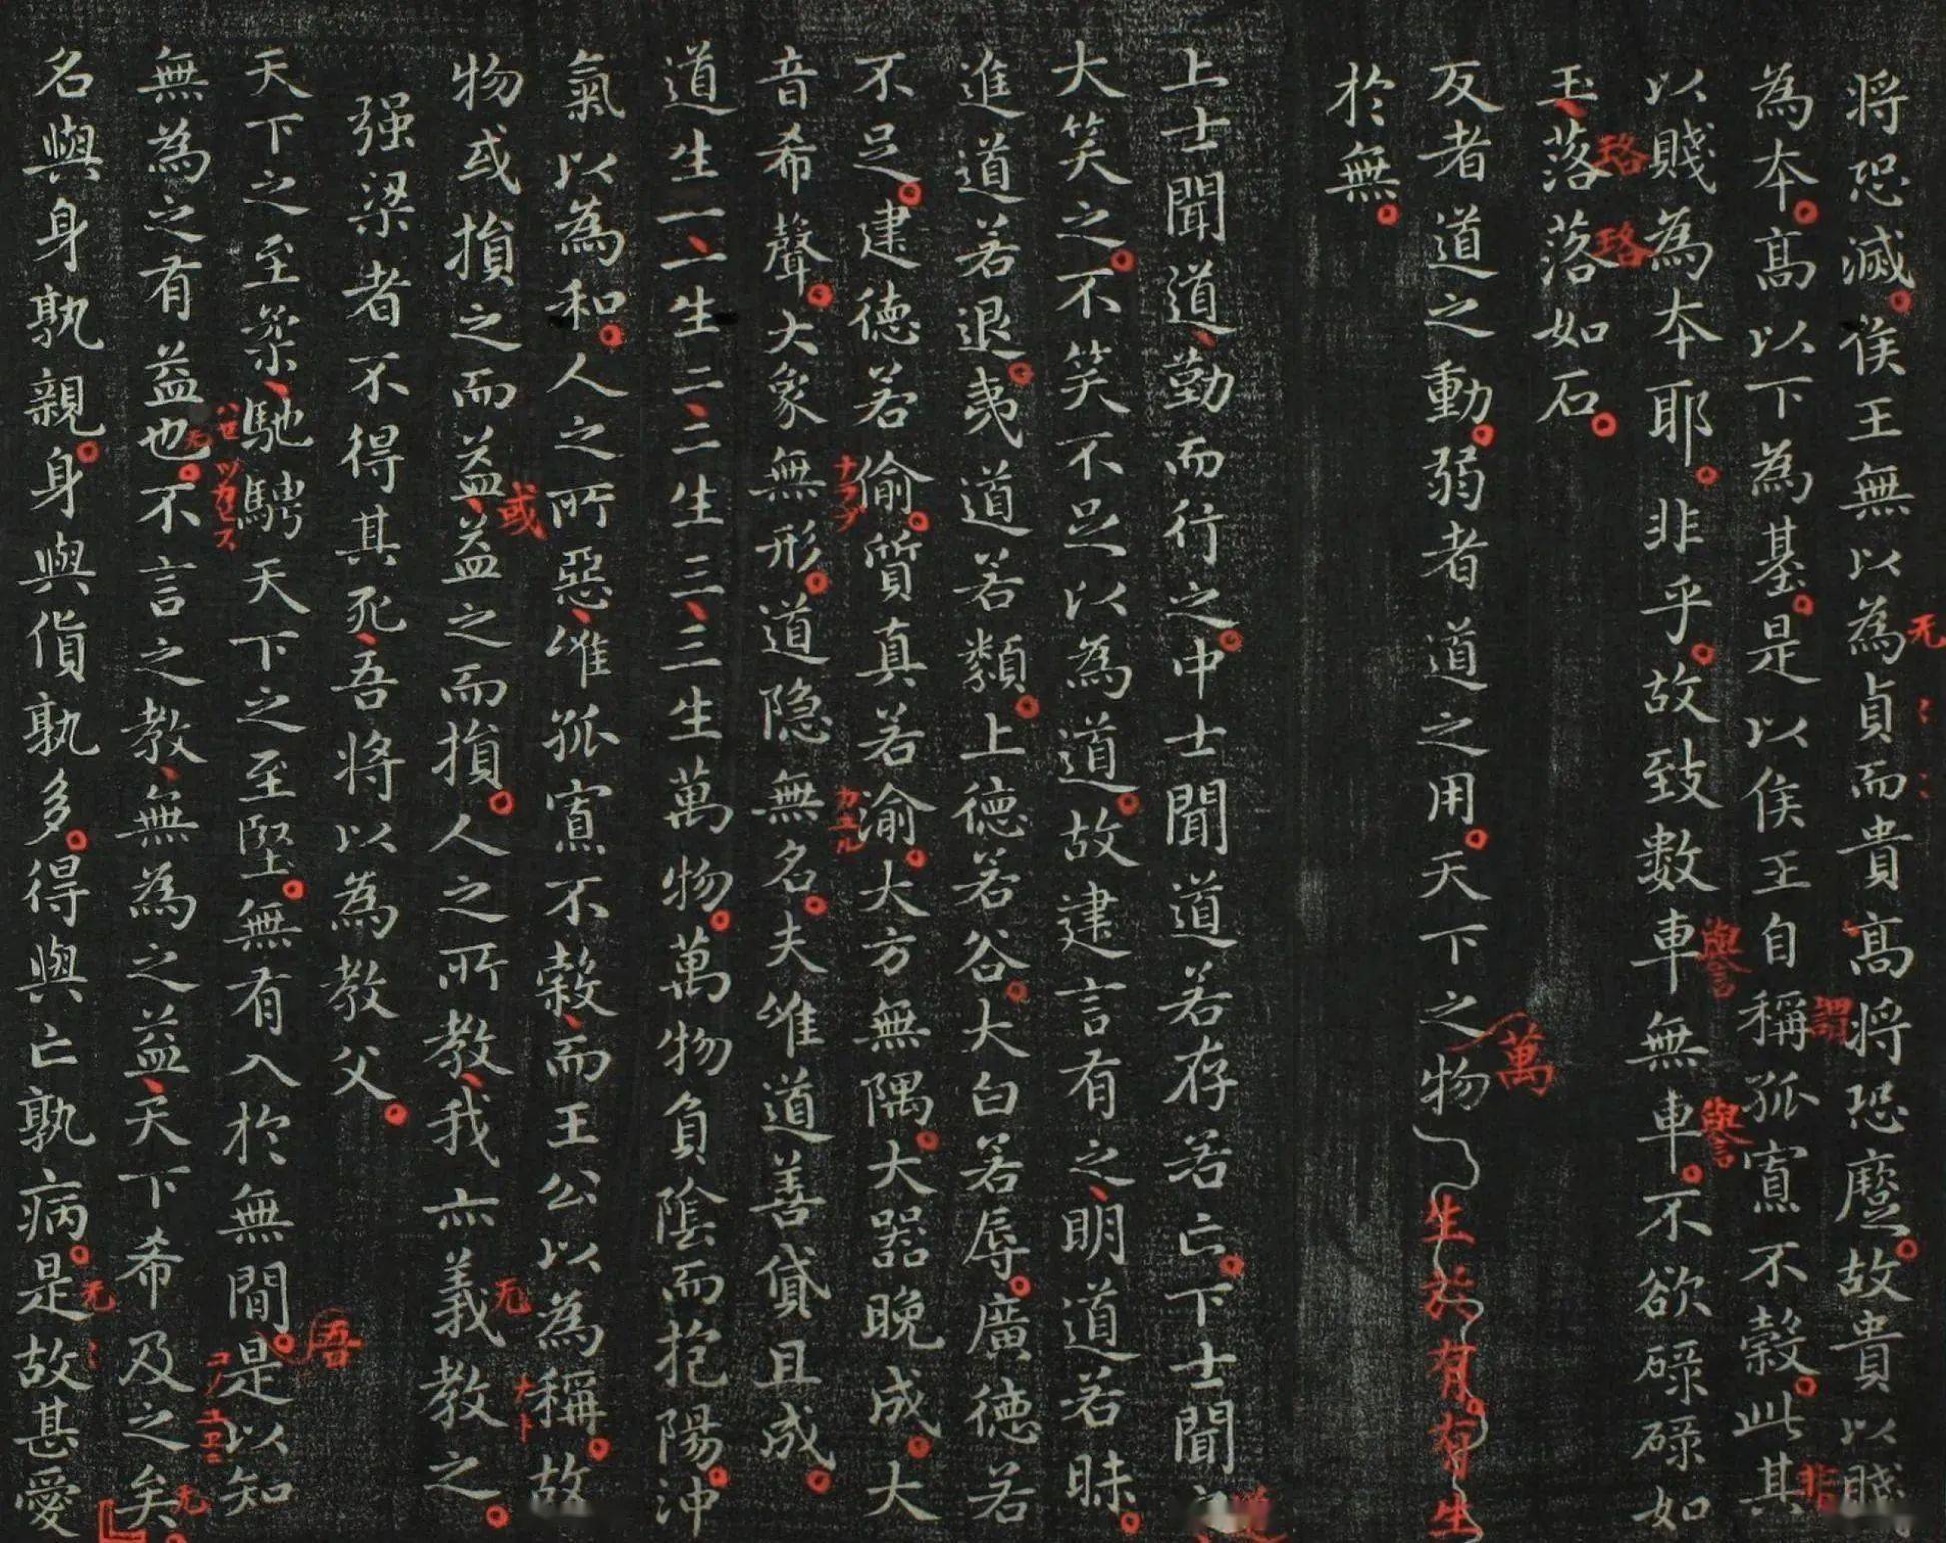 将恐滅。侯王無以為貞而貴高将恐蹷。故貴以賤
无
為本。高以下為基。是以侯王自稱孤寡不穀。此其
謂
非
以賤為本耶。非乎。故致數車無車。不欲碌碌如
譽
譽
玉、落落如石。
珞
珞
反者道之動。弱者道之用。天下之物生於有。有生
萬
於無。
上士聞道、勤而行之。中士聞道若存若亡。下士聞道
大笑之。不笑不足以為道。故建言有之、明道若昧。
進道若退。夷道若類。上德若谷。大白若辱。廣德若
不足。建德若偷。質真若渝。大方無隅。大器晚成。大
ナラク
カエル
音希聲。大象無形。道隐無名。夫唯道善貸且成。
道生一、一生二、二生三、三生萬物。萬物負陰而抱陽。沖
氣以為和。人之所惡、唯孤寡不穀、而王公以為稱。故
物或損之而益、益之而損。人之所教、我亦義教之。
或
无
强梁者不得其死、吾将以為教父。
天下之至柔、馳騁天下之至堅。無有入於無間。是以知
吾
無為之有益也。不言之教、無為之益、天下希及之矣。
无
ハセツカセス
无
名與身孰親。身與貨孰多。得與亡孰病。是故甚愛
无